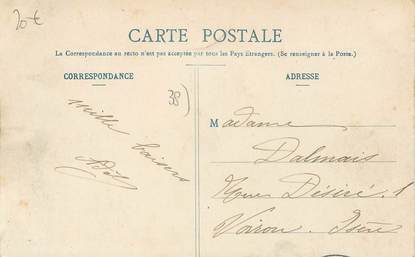 20 €
CARTE POSTALE
La Correspondance au recto n'est pas acceptée par tous les Pays Étrangers. (Se renseigner à la Poste.)
CORRESPONDANCE
38)
mille baisers
ADRESSE
Madame
Dalmais
Désiré. 1
Voiron. Isère